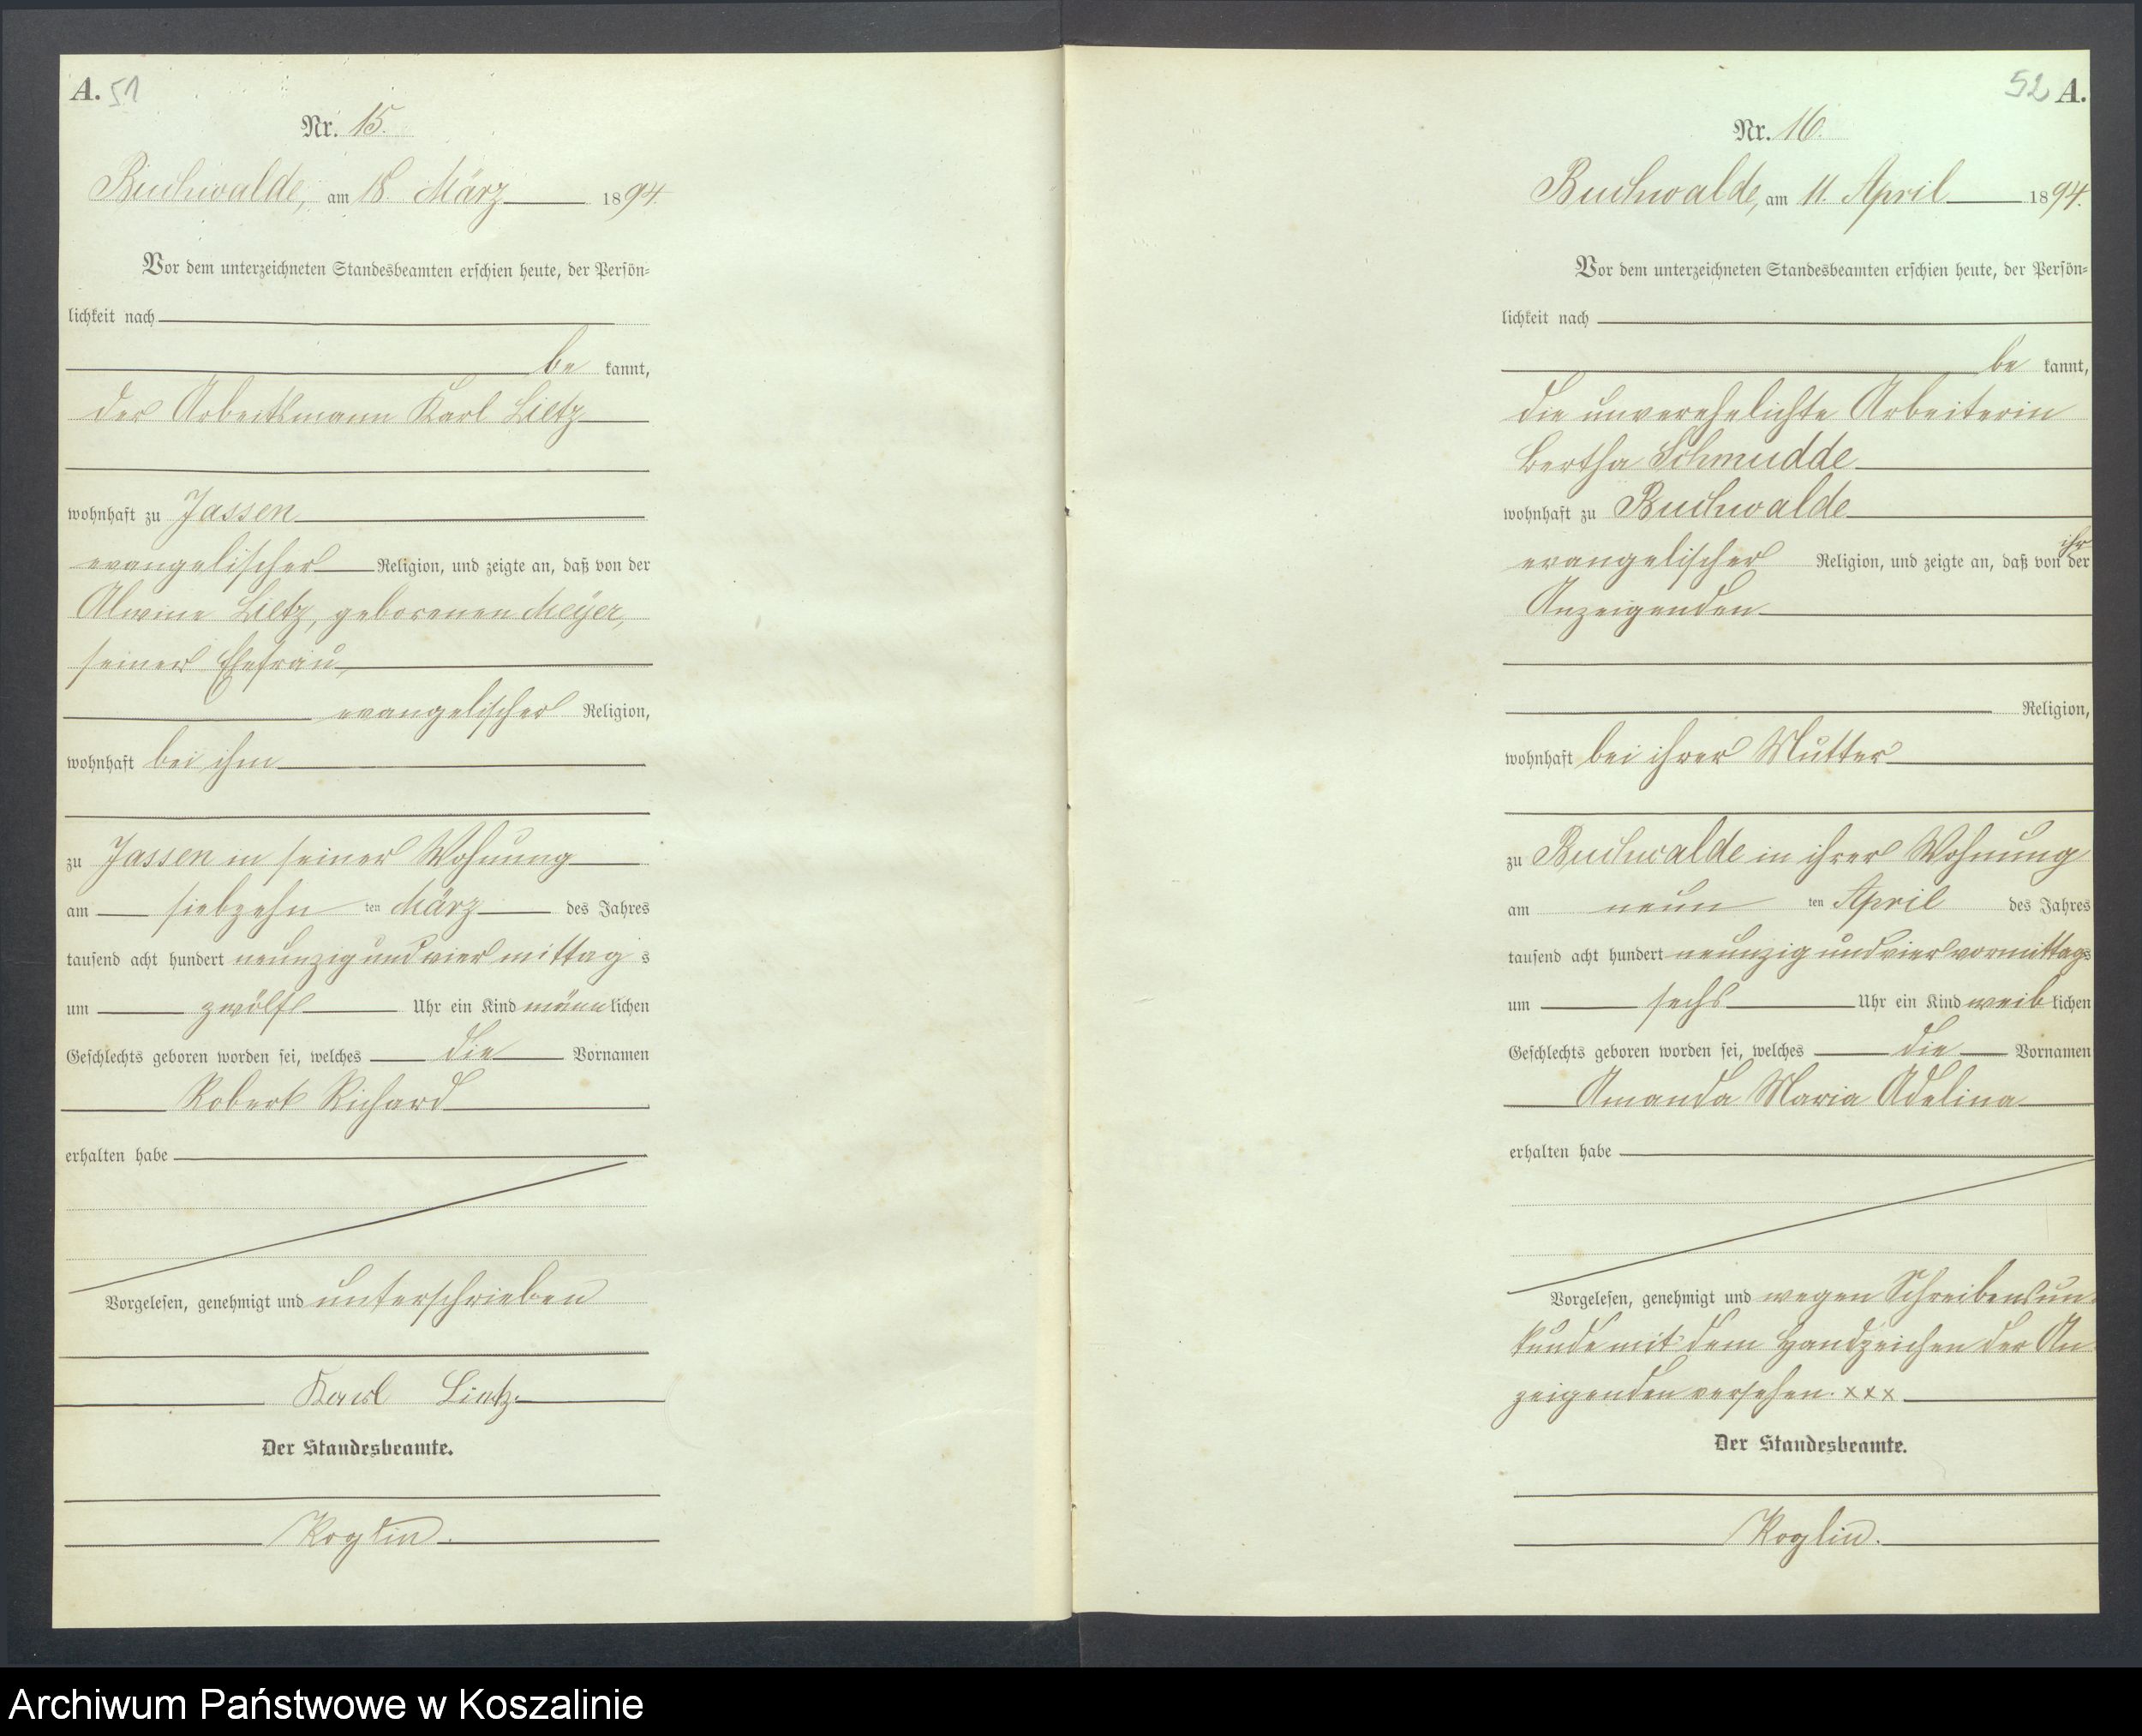 A. 51
Nr. 15.
Buchwalde, am 18. März 1894.
Vor dem unterzeichneten Standesbeamten erschien heute, der Persön=
lichkeit nach
be kannt,
der Arbeitsmann Karl Lietz
wohnhaft zu Jassen
evangelischer Religion, und zeigte an, daß von der
Alwine Lietz, geborenen Meyer,
seiner Ehefrau,
evangelischer Religion,
wohnhaft bei ihm
zu Jassen in seiner Wohnung
am siebzehn ten März des Jahres
tausend acht hundert neunzig und vier mittag s
um zwölf Uhr ein Kind männlichen
Geschlechts geboren worden sei, welches die Vornamen
Robert Richard
erhalten habe
Vorgelesen, genehmigt und unterschrieben
Karl Lietz.
Der Standesbeamte.
Koglin.
52 A.
Nr. 16.
Buchwalde, am 11. April 1894.
Vor dem unterzeichneten Standesbeamten erschien heute, der Persön=
lichkeit nach
be kannt,
die unverehelichte Arbeiterin
Bertha Schmudde
wohnhaft zu Buchwalde
ihr
evangelischer Religion, und zeigte an, daß von der
Anzeigenden
Religion,
wohnhaft bei ihrer Mutter
zu Buchwalde in ihrer Wohnung
am neun ten April des Jahres
tausend acht hundert neunzig und vier vormittags
um sechs Uhr ein Kind weiblichen
Geschlechts geboren worden sei, welches die Vornamen
Amanda Maria Adelina
erhalten habe
Vorgelesen, genehmigt und wegen Schreibensun-
kunde mit dem Handzeichen der An-
zeigenden versehen. xxx
Der Standesbeamte.
Koglin.
Archiwum Państwowe w Koszalinie